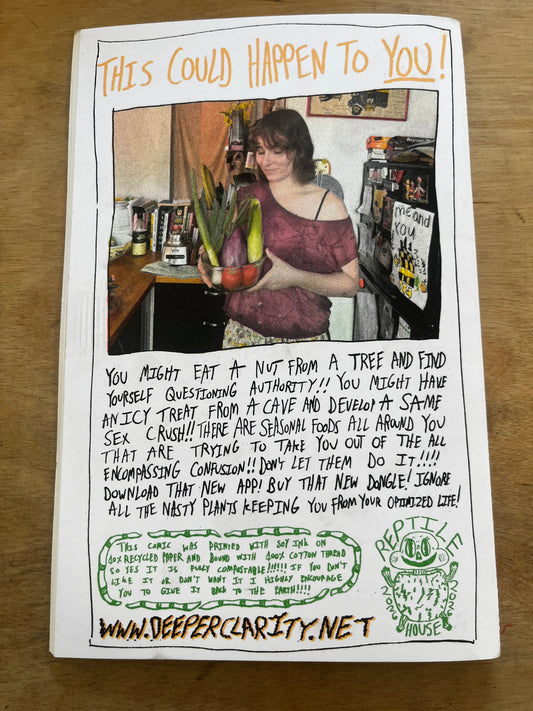 THIS COULD HAPPEN TO YOU!
me and
YOU
YOU MIGHT EAT A NUT FROM A TREE AND FIND
YOURSELF QUESTIONING AUTHORITY!! YOU MIGHT HAVE
AN ICY TREAT FROM A CAVE AND DEVELOP A SAME
SEX CRUSH!! THERE ARE SEASONAL FOODS ALL AROUND YOU
THAT ARE TRYING TO TAKE YOU OUT OF THE ALL
ENCOMPASSING CONFUSION!! DON'T LET THEM DO IT!!!!
DOWNLOAD THAT NEW APP! BUY THAT NEW DONGLE! IGNORE
ALL THE NASTY PLANTS KEEPING YOU FROM YOUR OPTIMIZED LIFE!
THIS COMIC WAS PRINTED WITH SOY INK ON
RECYCLED PAPER AND BOUND WITH 100% COTTON THREAD
SO YES IT IS FULLY COMPOSTABLE!!!!!! IF YOU DON'T
LIKE IT OR DON'T WANT IT I HIGHLY ENCOURAGE
YOU TO GIVE IT BACK TO THE EARTH!!!!
REPTILE
HOUSE
WWW.DEEPERCLARITY.NET